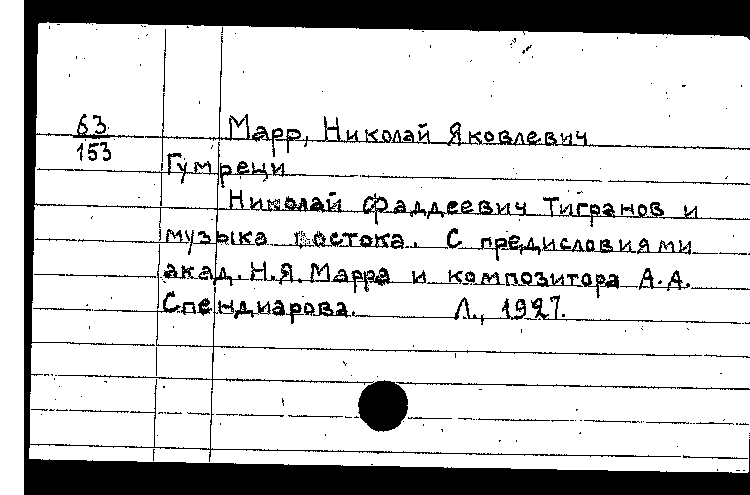 63
153
Марр, Николай Яковлевич
Гумреци
Николай Фаддеевич Тигранов и
музыка востока. С предисловиями
акад. Н.Я. Марра и композитора А.А.
Спендиарова. Л., 1927.